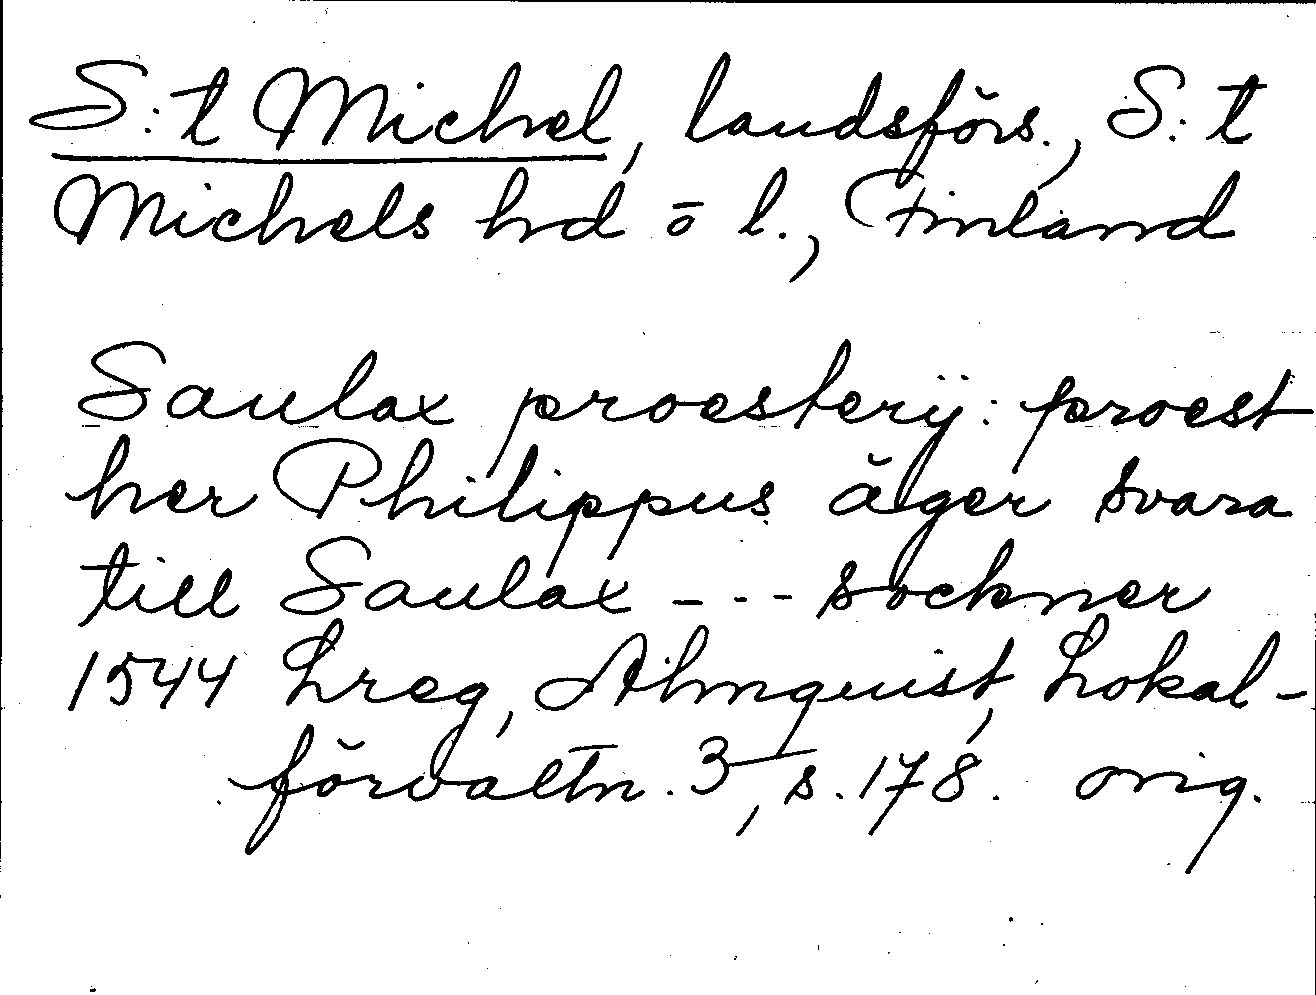 S:t Michel, landsförs., S:t
Michels hd o l., Finland
Saulax proesterÿ: proest
her Philippus äger svara
till Saulax --- sockner
1544 Lreg, Almquist, Lokal-
förvaltn. 3, s. 178. orig.